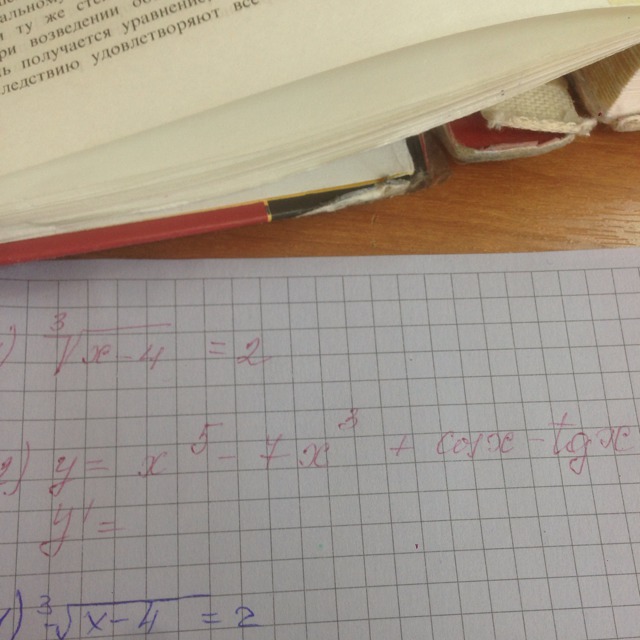 льном
ту же сте
ри возведении об
ь получается уравнени
ледствию удовлетворяют все
1) ∛x-4 = 2
2) y = x⁵ - 7x³ + cosx - tgx
y' =
1) ∛x-4 = 2